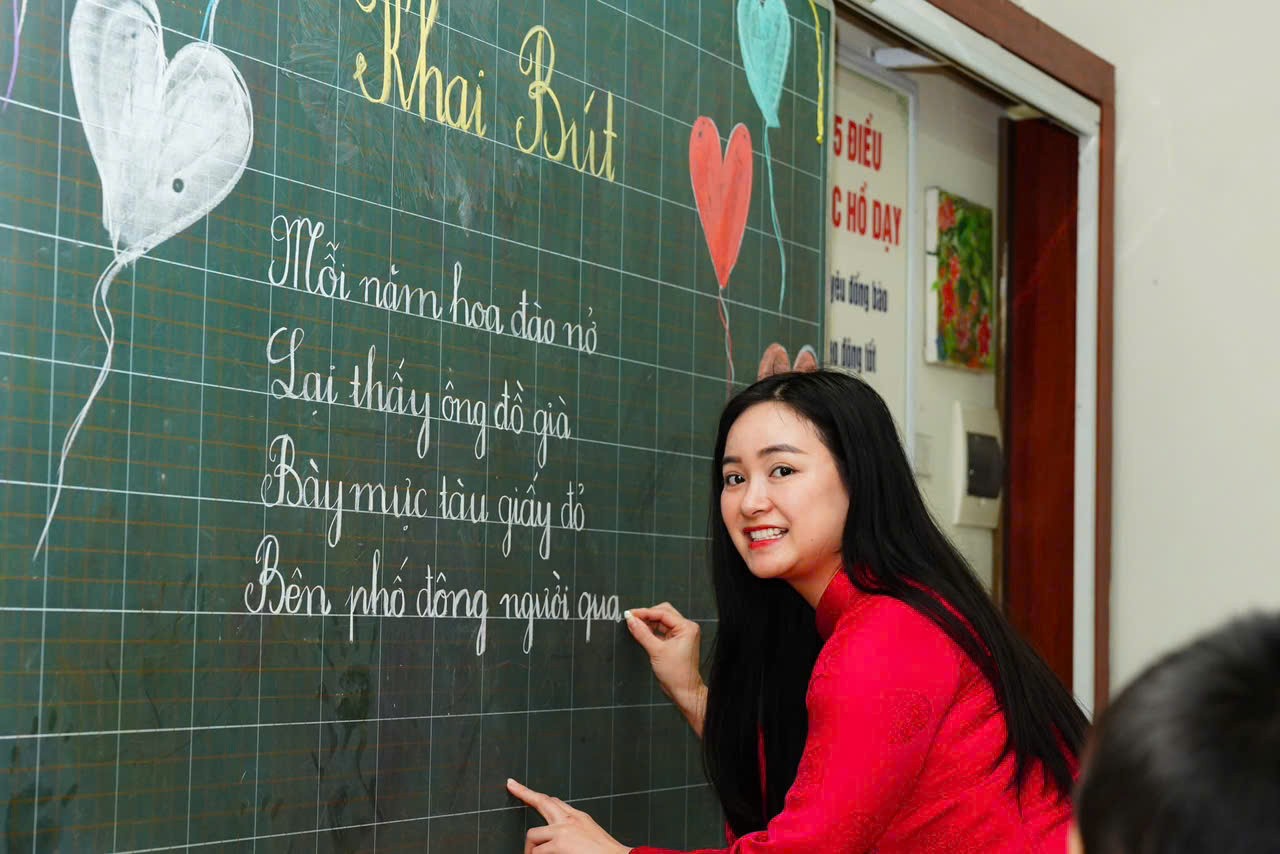 Khai Bút
Mỗi năm hoa đào nở
Lại thấy ông đồ già
Bày mực tàu giấy đỏ
Bên phố đông người qua
5 ĐIỀU
C HỒ DẠY
yêu đồng bào
o động tốt